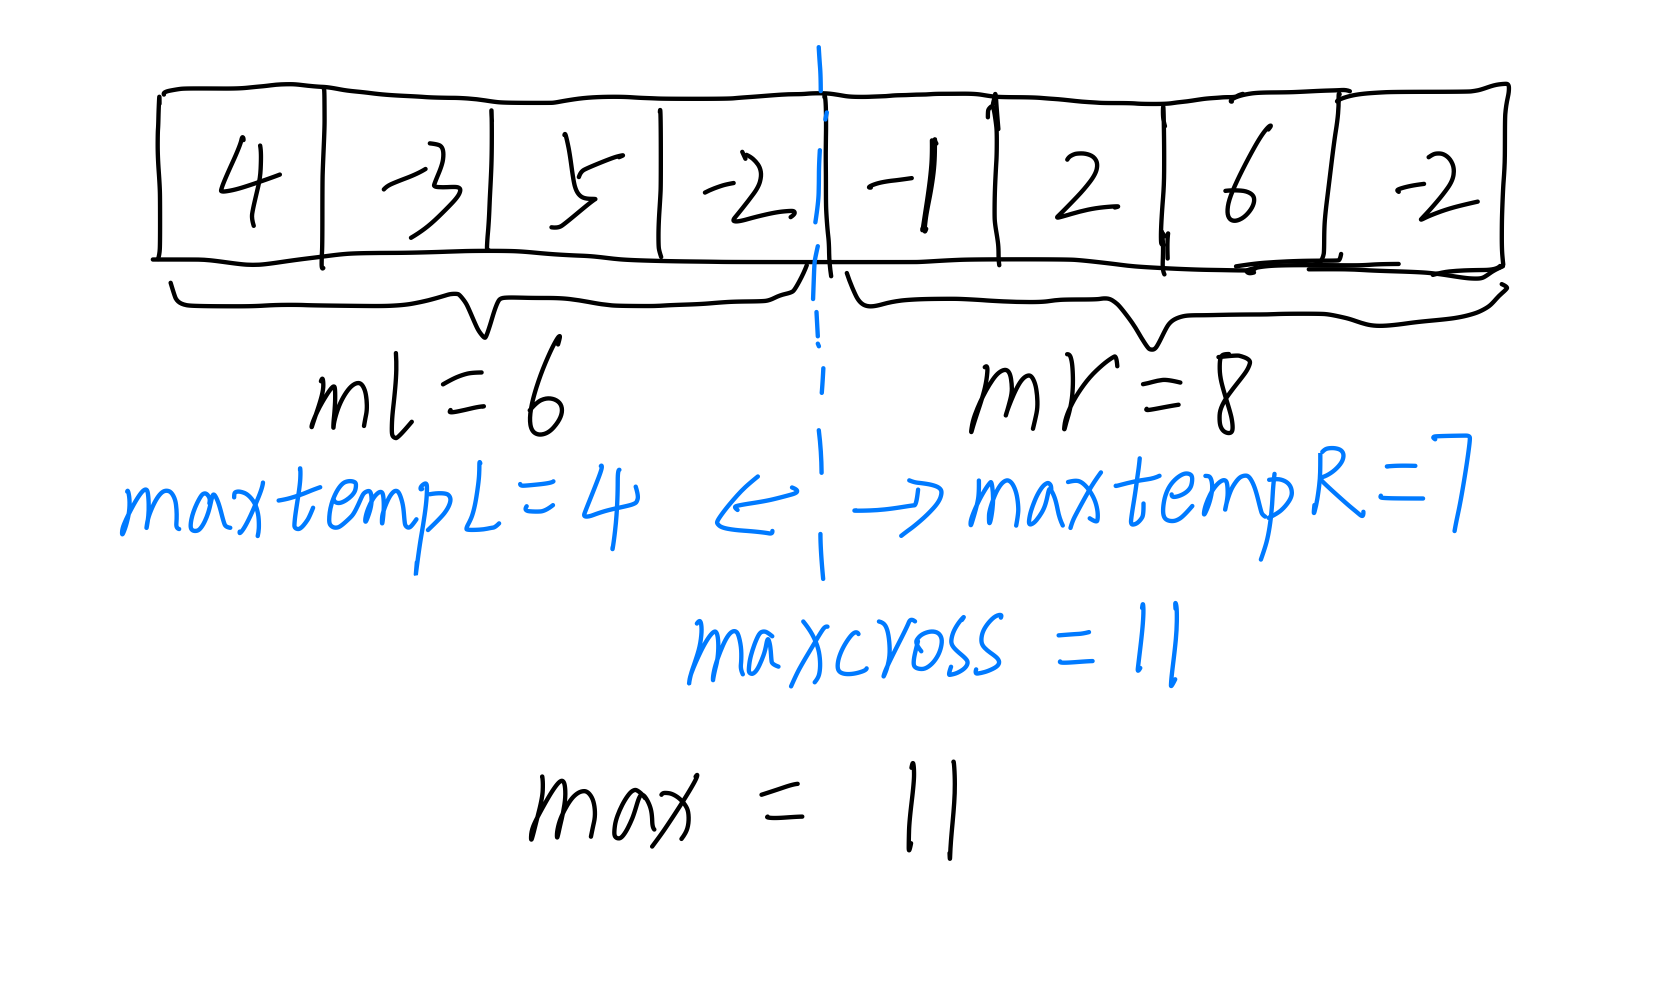 4 -3 5 -2 -1 2 6 -2
ml = 6 mr = 8
maxtempL = 4 ← → maxtempR = 7
maxcross = 11
max = 11